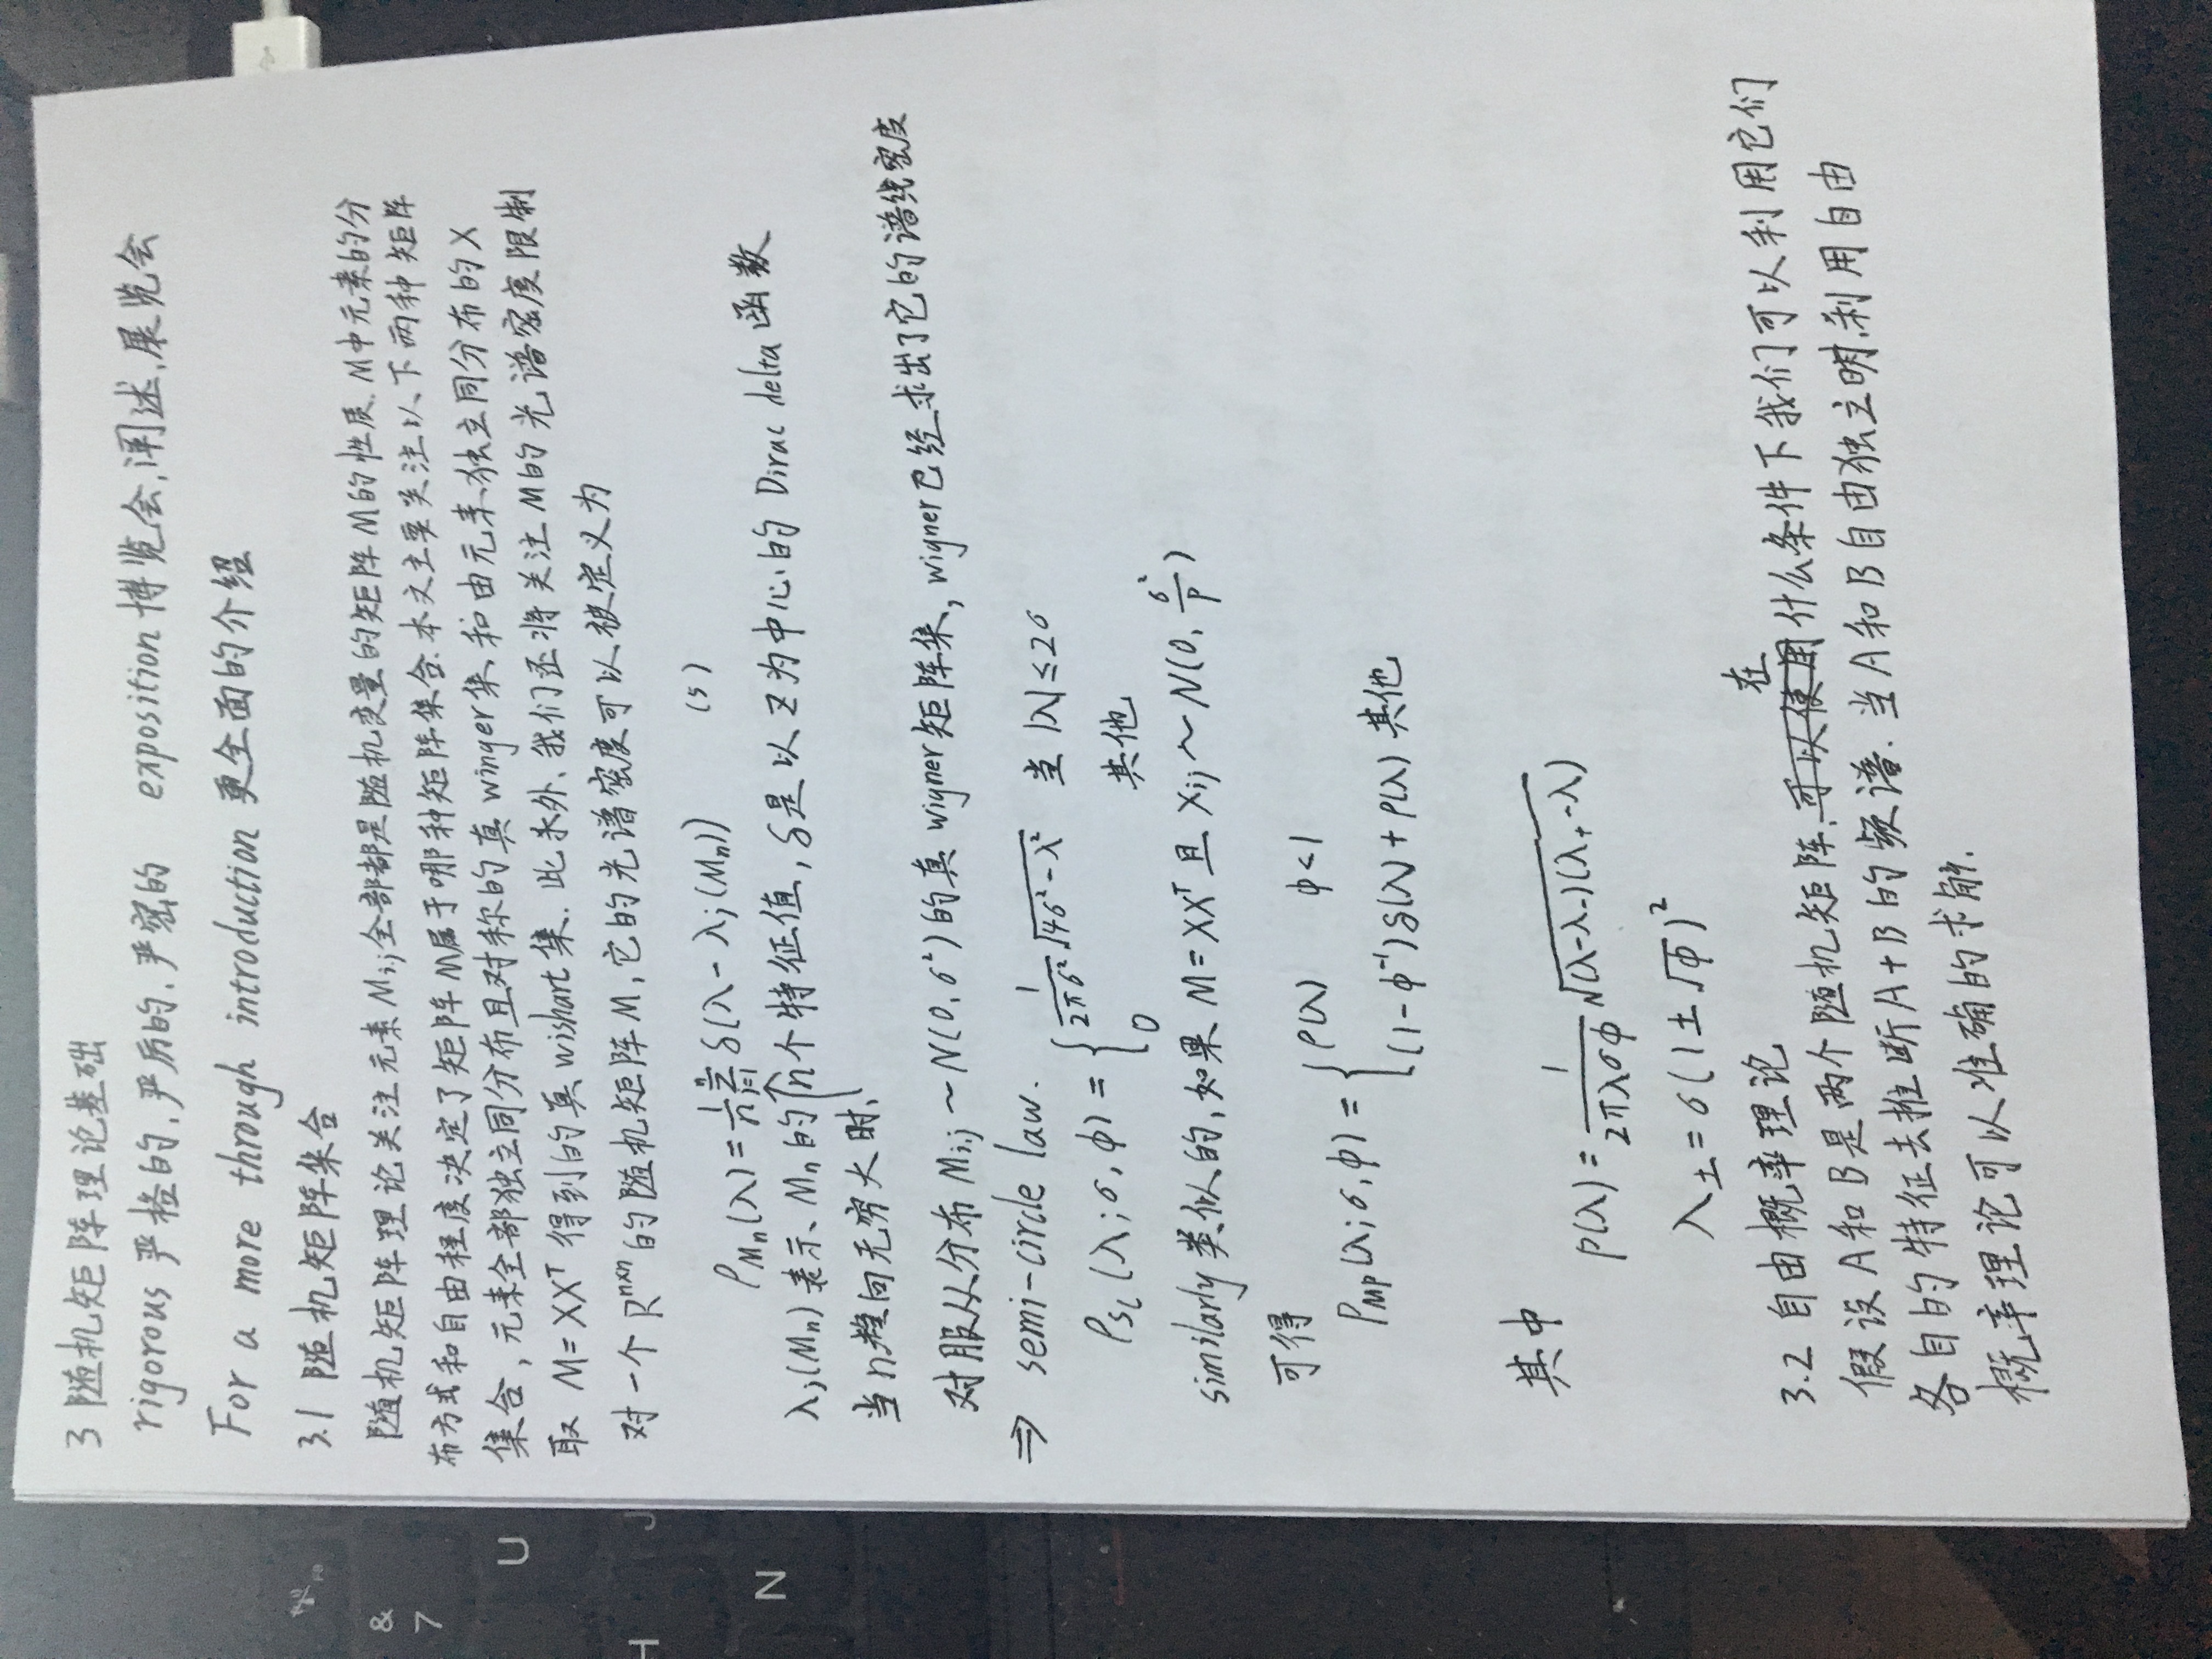 3 随机矩阵理论基础
rigorous 严格的,严厉的,严密的 exposition 博览会,阐述,展览会
For a more through introduction 更全面的介绍
3.1 随机矩阵集合
随机矩阵理论关注元素 Mi,j 全部都是随机变量的矩阵 M 的性质. M中元素的分
布方式和自由程度决定了矩阵 M属于哪种矩阵集合.本文主要关注以下两种矩阵
集合,元素全部独立同分布且对称的真 winger 集 和由元素独立同分布的 X
取 M=XXᵀ 得到的真 wishart 集. 此外,我们还将关注 M的光谱密度限制
对一个 Rⁿˣⁿ 的随机矩阵 M,它的光谱密度可以被定义为
ρMn(λ) = 1/n Σⁿj=1 δ(λ - λj(Mn)) (5)
λj(Mn) 表示 Mn 的 n个特征值, δ是以 Z为中心的 Dirac delta 函数
当 n趋向无穷大时,
对服从分布 Mi,j ~ N(0, σ²) 的真 wigner 矩阵集, wigner已经求出了它的谱线密度
⇒ semi-circle law.
ρSC(λ; σ, φ) = { 1/(2πσ²) √(4σ²-λ²) 当 |λ| ≤ 2σ
0 其他
similarly 类似的,如果 M=XXᵀ 且 Xij ~ N(0, σ²/p)
可得
ρMP(λ; σ, φ) = { ρ(λ) φ<1
(1-φ⁻¹)δ(λ) + ρ(λ) 其他
其中
ρ(λ) = 1/(2πλσφ) √((λ-λ₋)(λ₊-λ))
λ± = σ(1±√φ)²
3.2 自由概率理论
假设 A和 B是两个随机矩阵,在什么条件下我们可以利用它们
各自的特征去推断 A+B 的频谱. 当 A和 B 自由独立时,利用自由
概率理论可以准确的求解.
& 7
U
H J
N
F8